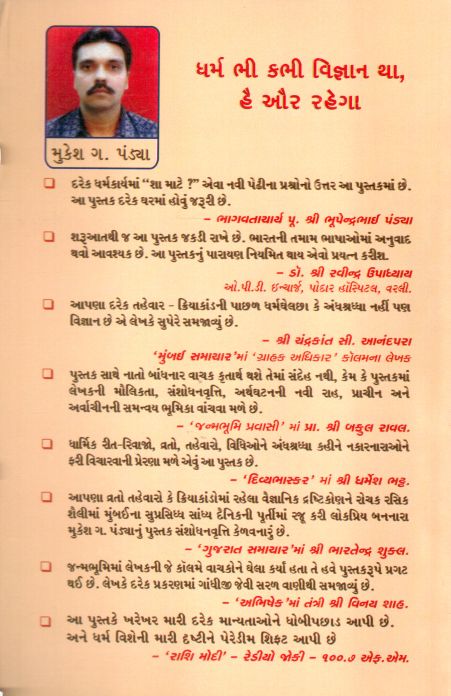 ધર્મ ભી કભી વિજ્ઞાન થા,
હૈ ઔર રહેગા
મુકેશ ગ. પંડ્યા
દરેક ધર્મકાર્યમાં “શા માટે ?” એવા નવી પેઢીના પ્રશ્નોનો ઉત્તર આ પુસ્તકમાં છે.
આ પુસ્તક દરેક ઘરમાં હોવું જરૂરી છે.
– ભાગવતાચાર્ય પૂ. શ્રી ભૂપેન્દ્રભાઈ પંડ્યા
શરૂઆતથી જ આ પુસ્તક જકડી રાખે છે. ભારતની તમામ ભાષાઓમાં અનુવાદ
થવો આવશ્યક છે. આ પુસ્તકનું પારાયણ નિયમિત થાય એવો પ્રયત્ન કરીશ.
– ડૉ. શ્રી રવીન્દ્ર ઉપાધ્યાય
ઓ.પી.ડી. ઇન્ચાર્જ, પોદાર હૉસ્પિટલ, વરલી.
આપણા દરેક તહેવાર - ક્રિયાકાંડની પાછળ ધર્મઘેલછા કે અંધશ્રધ્ધા નહીં પણ
વિજ્ઞાન છે એ લેખકે સુપેરે સમજાવ્યું છે.
– શ્રી ચંદ્રકાંત સી. આનંદપરા
‘મુંબઈ સમાચાર’માં ‘ગ્રાહક અધિકાર’ કૉલમના લેખક
પુસ્તક સાથે નાતો બાંધનાર વાચક કૃતાર્થ થશે તેમાં સંદેહ નથી, કેમ કે પુસ્તકમાં
લેખકની મૌલિકતા, સંશોધનવૃત્તિ, અર્થઘટનની નવી રાહ, પ્રાચીન અને
અર્વાચીનની સમન્વય ભૂમિકા વાંચવા મળે છે.
– ‘જન્મભૂમિ પ્રવાસી’ માં પ્રા. શ્રી બકુલ રાવલ.
ધાર્મિક રીત-રિવાજો, વ્રતો, તહેવારો, વિધિઓને અંધશ્રધ્ધા કહીને નકારનારાઓને
ફરી વિચારવાની પ્રેરણા મળે એવું આ પુસ્તક છે.
– ‘દિવ્યભાસ્કર’ માં શ્રી ધર્મેશ ભટ્ટ.
આપણા વ્રતો તહેવારો કે ક્રિયાકાંડોમાં રહેલા વૈજ્ઞાનિક દ્રષ્ટિકોણને રોચક રસિક
શૈલીમાં મુંબઈના સુપ્રસિધ્ધ સાંધ્ય દૈનિકની પૂર્તીમાં રજૂ કરી લોકપ્રિય બનનારા
મુકેશ ગ. પંડ્યાનું પુસ્તક સંશોધનવૃત્તિ કેળવનારું છે.
– ‘ગુજરાત સમાચાર’માં શ્રી ભારતેન્દ્ર શુક્લ.
જન્મભૂમિમાં લેખકની જે કૉલમે વાચકોને ઘેલા કર્યાં હતા તે હવે પુસ્તકરૂપે પ્રગટ
થઈ છે. લેખકે દરેક પ્રકરણમાં ગાંધીજી જેવી સરળ વાણીથી સમજાવ્યું છે.
– ‘અભિષેક’માં તંત્રી શ્રી વિનય શાહ.
આ પુસ્તકે ખરેખર મારી દરેક માન્યતાઓને ધોબીપછાડ આપી છે.
અને ધર્મ વિશેની મારી દૃષ્ટીને પેરેડીમ શિફ્ટ આપી છે
– ‘રાશિ મોદી’ – રેડીયો જોકી – ૧૦૦.૭ એફ.એમ.